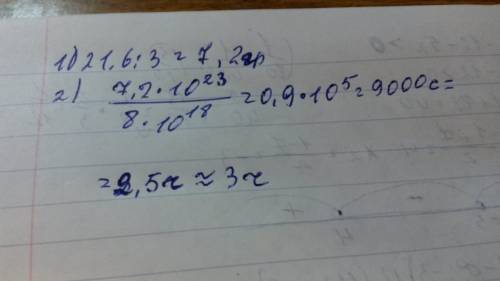 1) 21,6:3 = 7,2гр
2) 7,2·10²³ / 8·10¹⁸ = 0,9·10⁵ = 9000с =
= 2,5ч ≈ 3ч